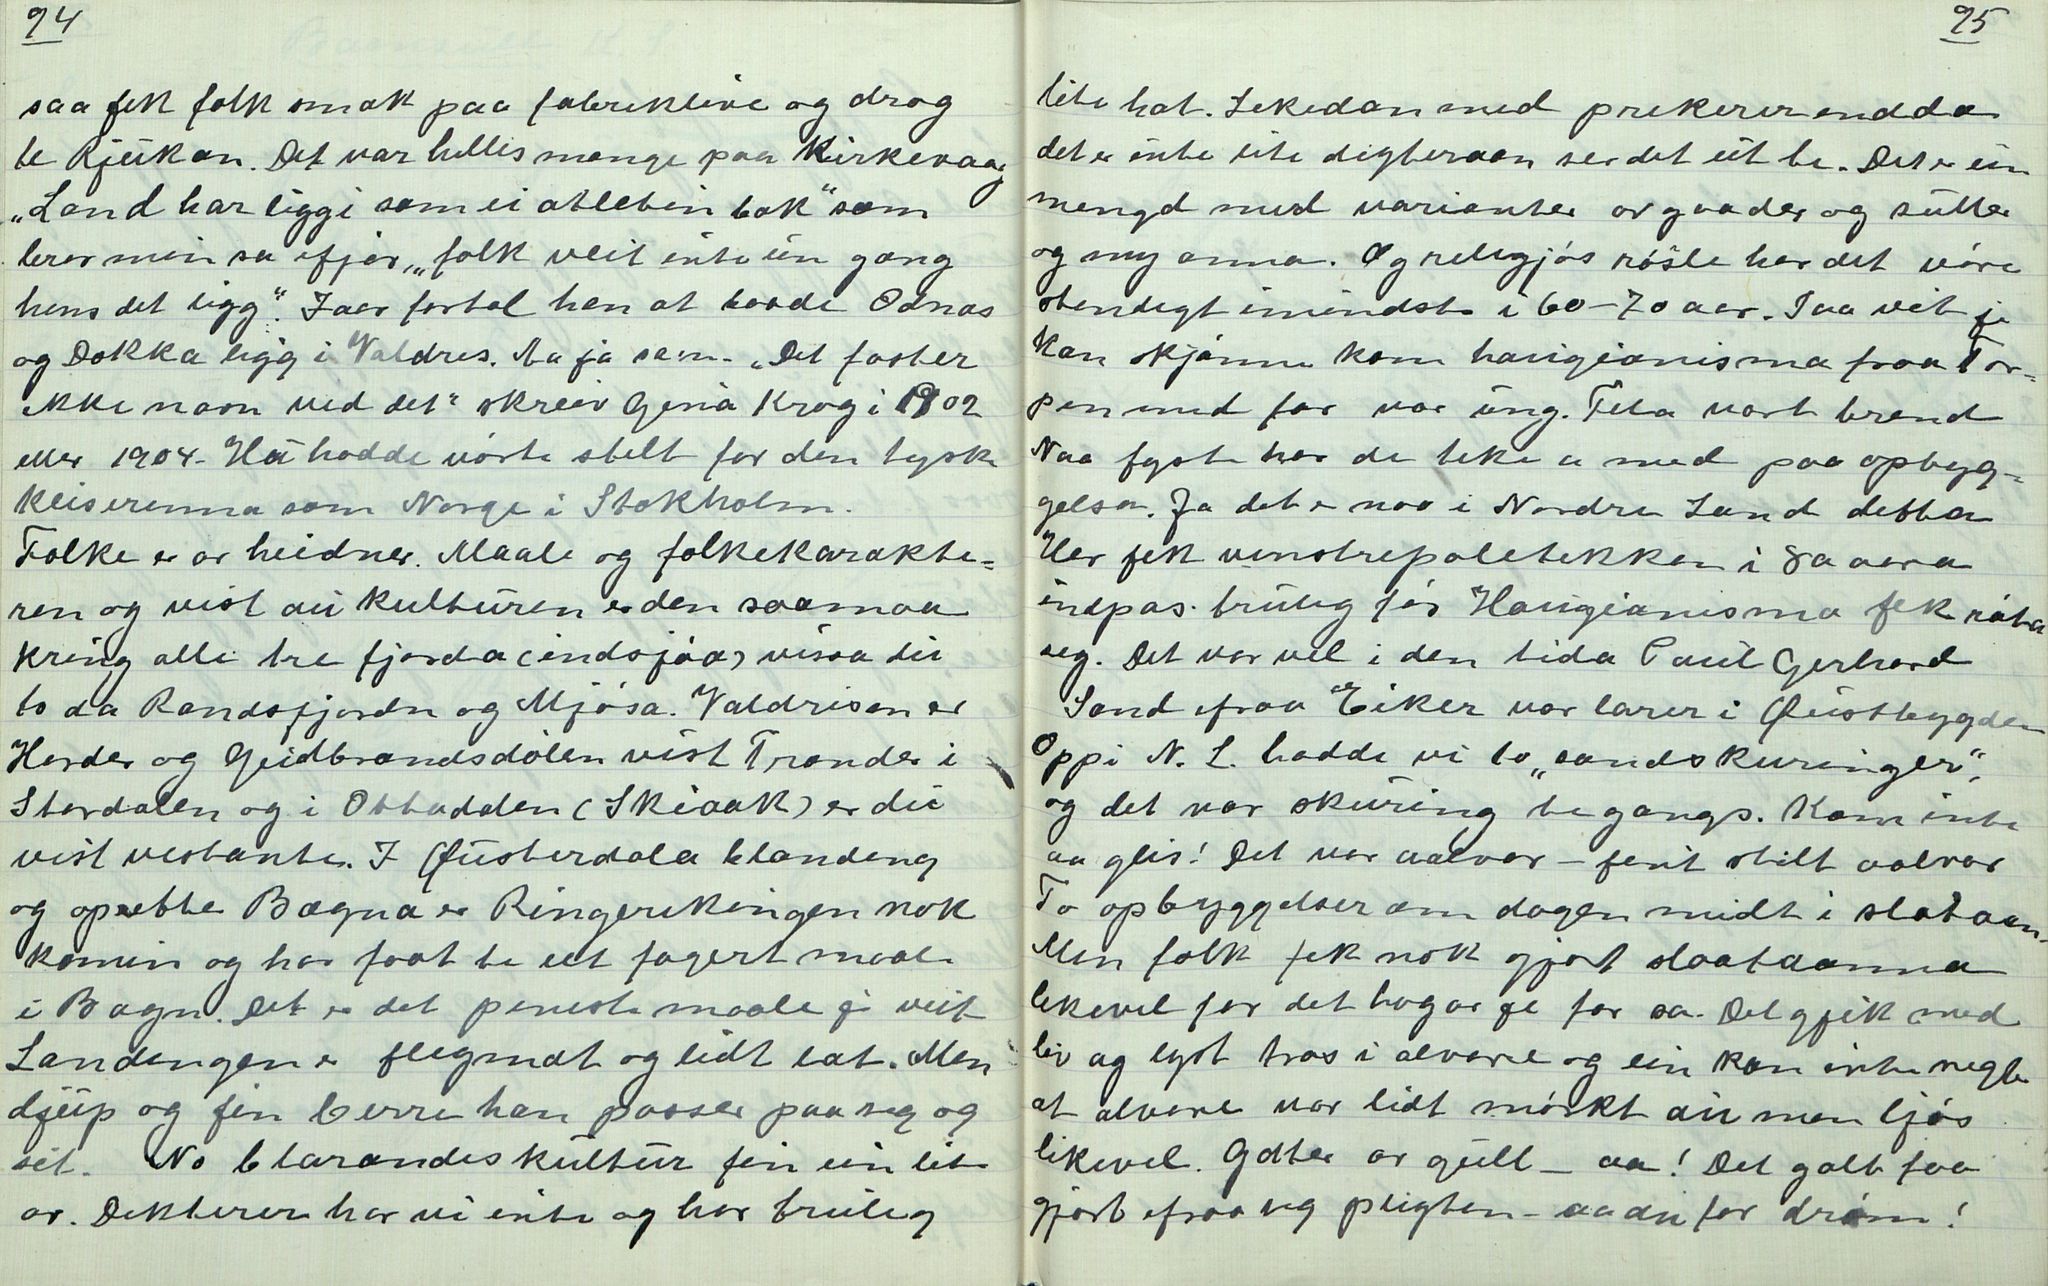 94
saa fek folk smak paa fabriklive og drog
te Rjukan. Det var hellis mange paa Kirkevaag
"Land har liggi som ei atletin bok" som
lerer min sa ifjor, "folk veit inte ein gong
hens det ligg". Iaar fortel han at baade Odnas
og Dokka ligg i Valdres. Aa ja san. "Det faster
ikke navn ved det" skreiv Gina Krog i 1902
eller 1904. Hu hadde vórte stelt for den tyske
Keiserenna som Norge i Stokholm.
Folke er or heidner. Maale og folkekarakte-
ren og vist au kulturen er den saamaa
kring alle tre fjorda (indsjóa) vissa du
to da Randsfjordn og Mjósa. Valdrisen er
Horder og Gudbrandsdólen vist Trønder i
Stordalen og i Ottadalen (Skiaak) er du
vist vestante. I Østerdala blandeng
og opette Bægna er Ringerikingen nok
komin og har faat te eit fagert maal
i Bagn. Det er det peneste maale je veit
Landingen er flegmat og lidt lat. Men
djup og fin berre han passer paa seg og
sit. No blarandis kultur fin ein lite
or. Dikterer har vi inte og har truleg
95
lite hat. Lekedan med prekerer endda
det er inte lite digteraan ser det ut te. Det er ein
mengd med varianter or gaader og sutter
og my anna. Og religjós rósle har det vóre
stendigt imindste i 60-70 aar. Saa vit je
kan skjónne kom haugianisma fraa Tor-
pen med far var ung. Feta vart brend
Naa fyst har de teke a med paa opbyg-
gelsa. Ja det er naa i Nordre Land detta
Her fek venstrepoletikken i 80 aara
indpas. truleg fór Haugianisma fek róta
seg. Det var vel i den tida Paul Gerhard
Sand ifraa Eiker var lærer i Østbygden
Oppi N. L. hadde vi to "sandskuringer",
og det var skuring te gangs. Kom inte
aa glis! Det var aalvor - fent stilt aalvor
To opbyggelser om dagen midt i slataan-
Men folk fek nok gjort slaataanna
likevel for det hugar je far sa. Det gjik med
liv og lyst tros i alvore og ein kan inte negte
at alvore var lidt mórkt au men ljós
likevel. Gdter or gull - aa! Det galt faa
gjort ifraa seg pligten - aa du for dróm!